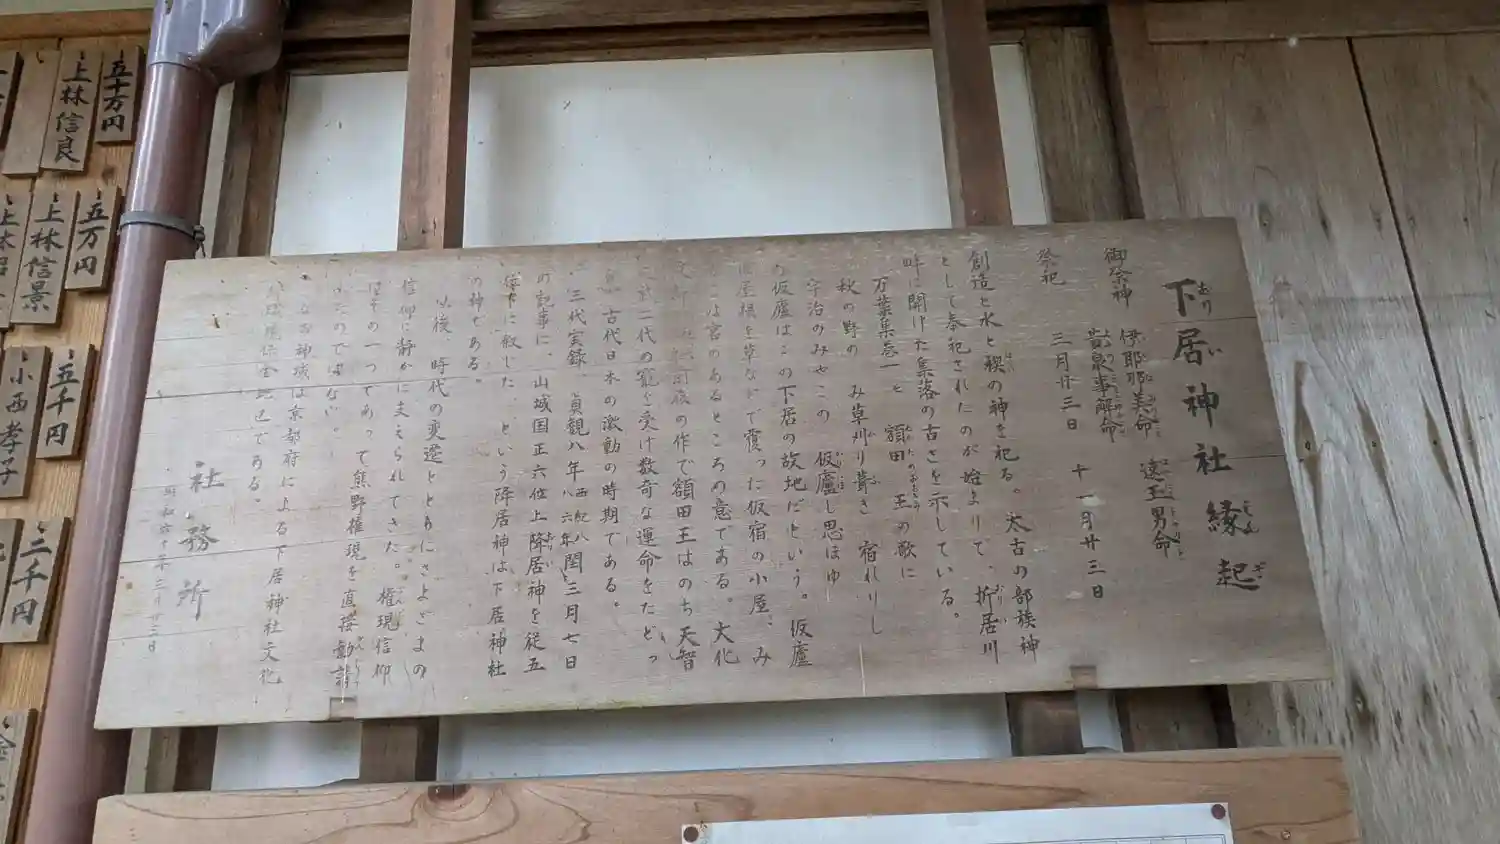 下居神社縁起
御祭神 伊耶那美命 速玉男命
豫泉事解命
祭祀 三月廿三日 十一月廿三日
創造と水と禊の神を祀る。太古の部族神
として奉祀されたのが始まりで、折居川
畔に開けた集落の古さを示している。
万葉集巻一 に 額田 王の歌に
秋の野の み草刈り葺き 宿れりし
宇治のみやこの 仮廬し思ほゆ
仮廬はこの下居の故地だという。仮廬
は屋根を草などで覆った仮宿の小屋、み
やこは宮のあるところの意である。大化
の作で額田王はのち天智
二代の寵を受け数奇な運命をたどっ
古代日本の激動の時期である。
三代実録、貞観八年西紀八六六年閏三月七日
の記事に、山城国正六位上降居神を従五
位下に叙した、という降居神は下居神社
の神である。
以後、時代の変遷とともにさまざまの
信仰に静かに支えられてきた。権現信仰
はその一つであって熊野権現を直接勧請
したのではない。
神域は京都府による下居神社文化
環境保全地区である。
社務所
三月廿三日
五十万円
上林信良
五万円
上林信景
五千円
小西孝子
三千円